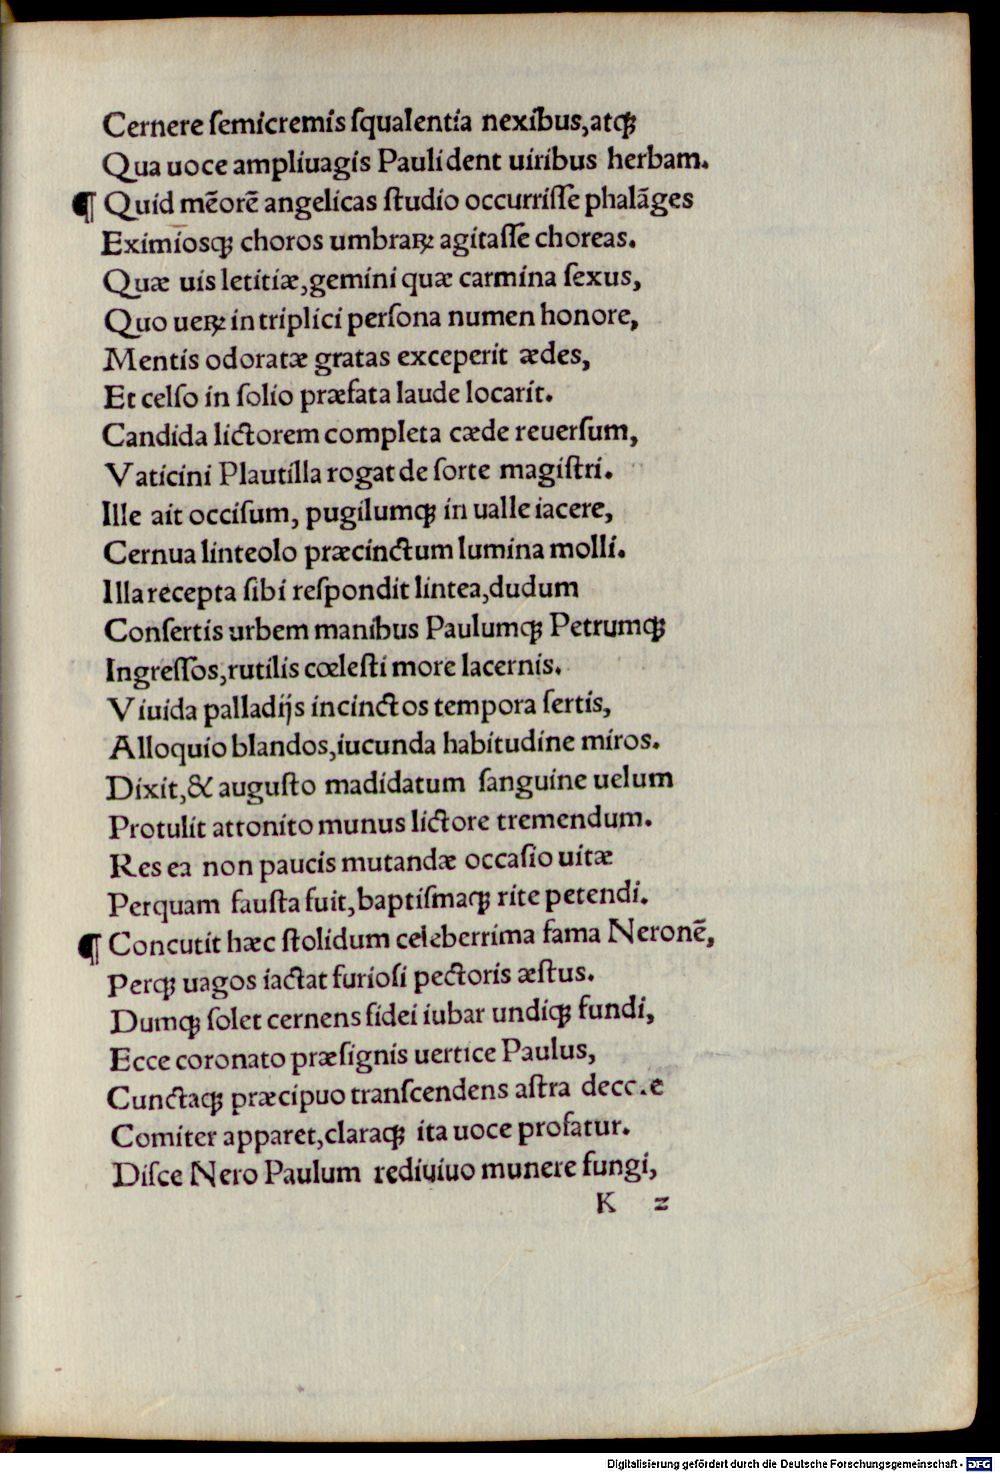 Cernere ſemicremis ſqualentia nexibus,atqꝫ
Qua uoce ampliuagis Pauli dent uiribus herbam.
¶ Quid mēorē angelicas ſtudio occurriſſe phalāges
Eximiosqꝫ choros umbraꝝ agitaſſe choreas.
Quæ uis letitiæ,gemini quæ carmina ſexus,
Quo ueꝝ in triplici perſona numen honore,
Mentis odoratæ gratas exceperit ædes,
Et celſo in ſolio præfata laude locarit.
Candida lictorem completa cæde reuerſum,
Vaticini Plautilla rogat de ſorte magiſtri.
Ille ait occiſum, pugilumqꝫ in ualle iacere,
Cernua linteolo præcinctum lumina molli.
Illa recepta ſibi reſpondit lintea,dudum
Conſertis urbem manibus Paulumqꝫ Petrumqꝫ
Ingreſſos,rutilis cœleſti more lacernis.
Viuida palladijs incinctos tempora ſertis,
Alloquio blandos,iucunda habitudine miros.
Dixit,& auguſto madidatum ſanguine uelum
Protulit attonito munus lictore tremendum.
Res ea non paucis mutandæ occaſio uitæ
Perquam fauſta fuit,baptiſmaqꝫ rite petendi.
¶ Concutit hæc ſtolidum celeberrima fama Neronē,
Perqꝫ uagos iactat furioſi pectoris æſtus.
Dumqꝫ ſolet cernens fidei iubar undiqꝫ fundi,
Ecce coronato præſignis uertice Paulus,
Cunctaqꝫ præcipuo tranſcendens aſtra
Comiter apparet,claraqꝫ ita uoce profatur.
Diſce Nero Paulum rediuiuo munere fungi,
K 2
Digitalisierung gefördert durch die Deutsche Forschungsgemeinschaft - DFG